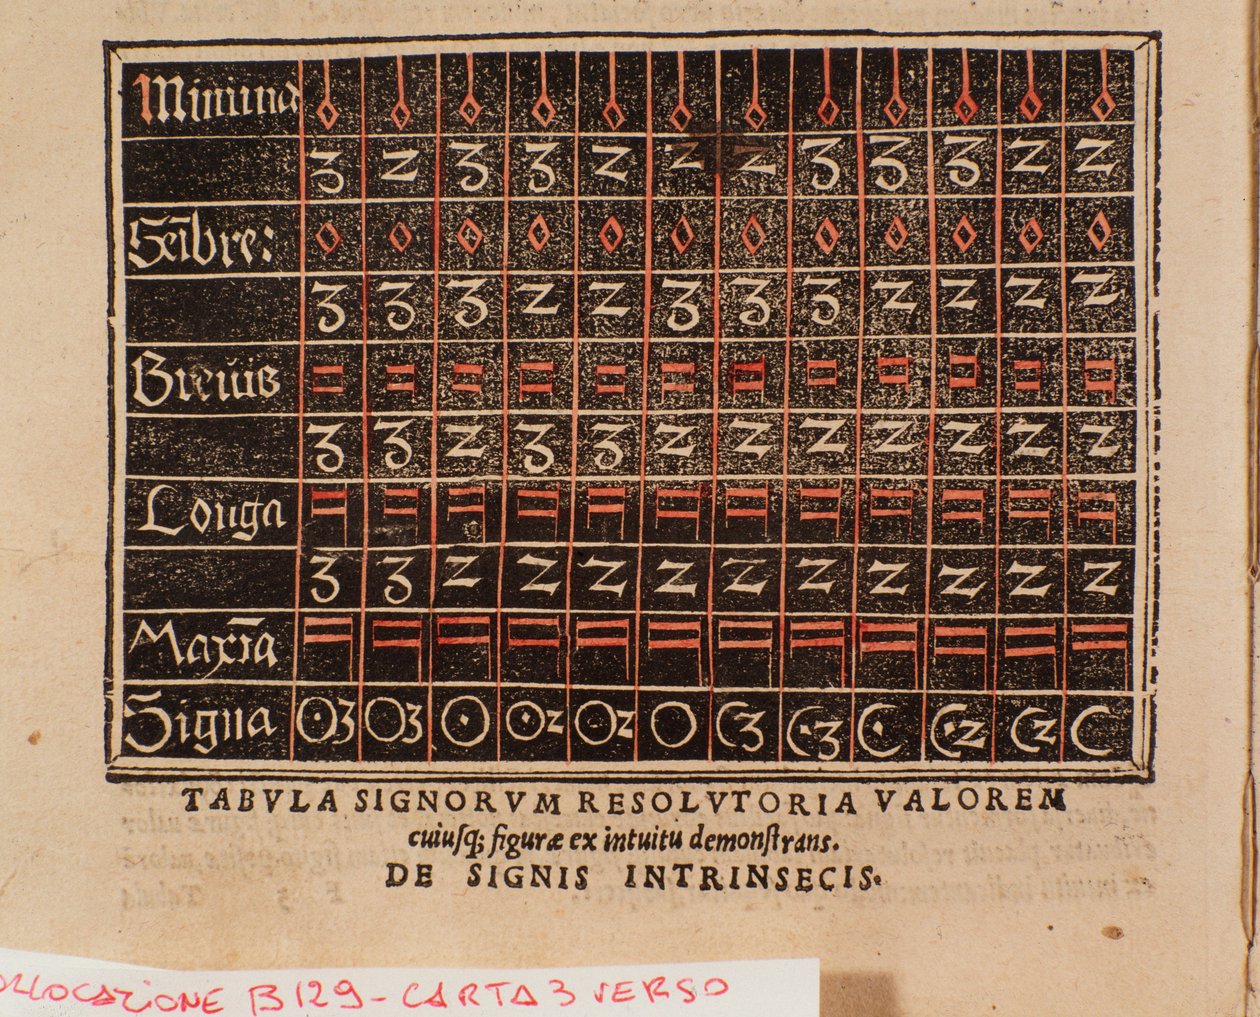 Minima
3 2 3 3 2 2 2 3 3 3 2 2
Semibre:
3 3 3 2 2 3 3 3 2 2 2 2
Breuis
3 3 2 3 3 2 2 2 2 2 2 2
Longa
3 3 2 2 2 2 2 2 2 2 2 2
Maxīa
Signa O3 O3 O O2 O2 O C3 C3 C C2 C2 C
TABVLA SIGNORVM RESOLVTORIA VALOREM
cuiusq; figuræ ex intuitu demonſtrans.
DE SIGNIS INTRINSECIS.
COLLOCAZIONE B129 - CARTA 3 VERSO